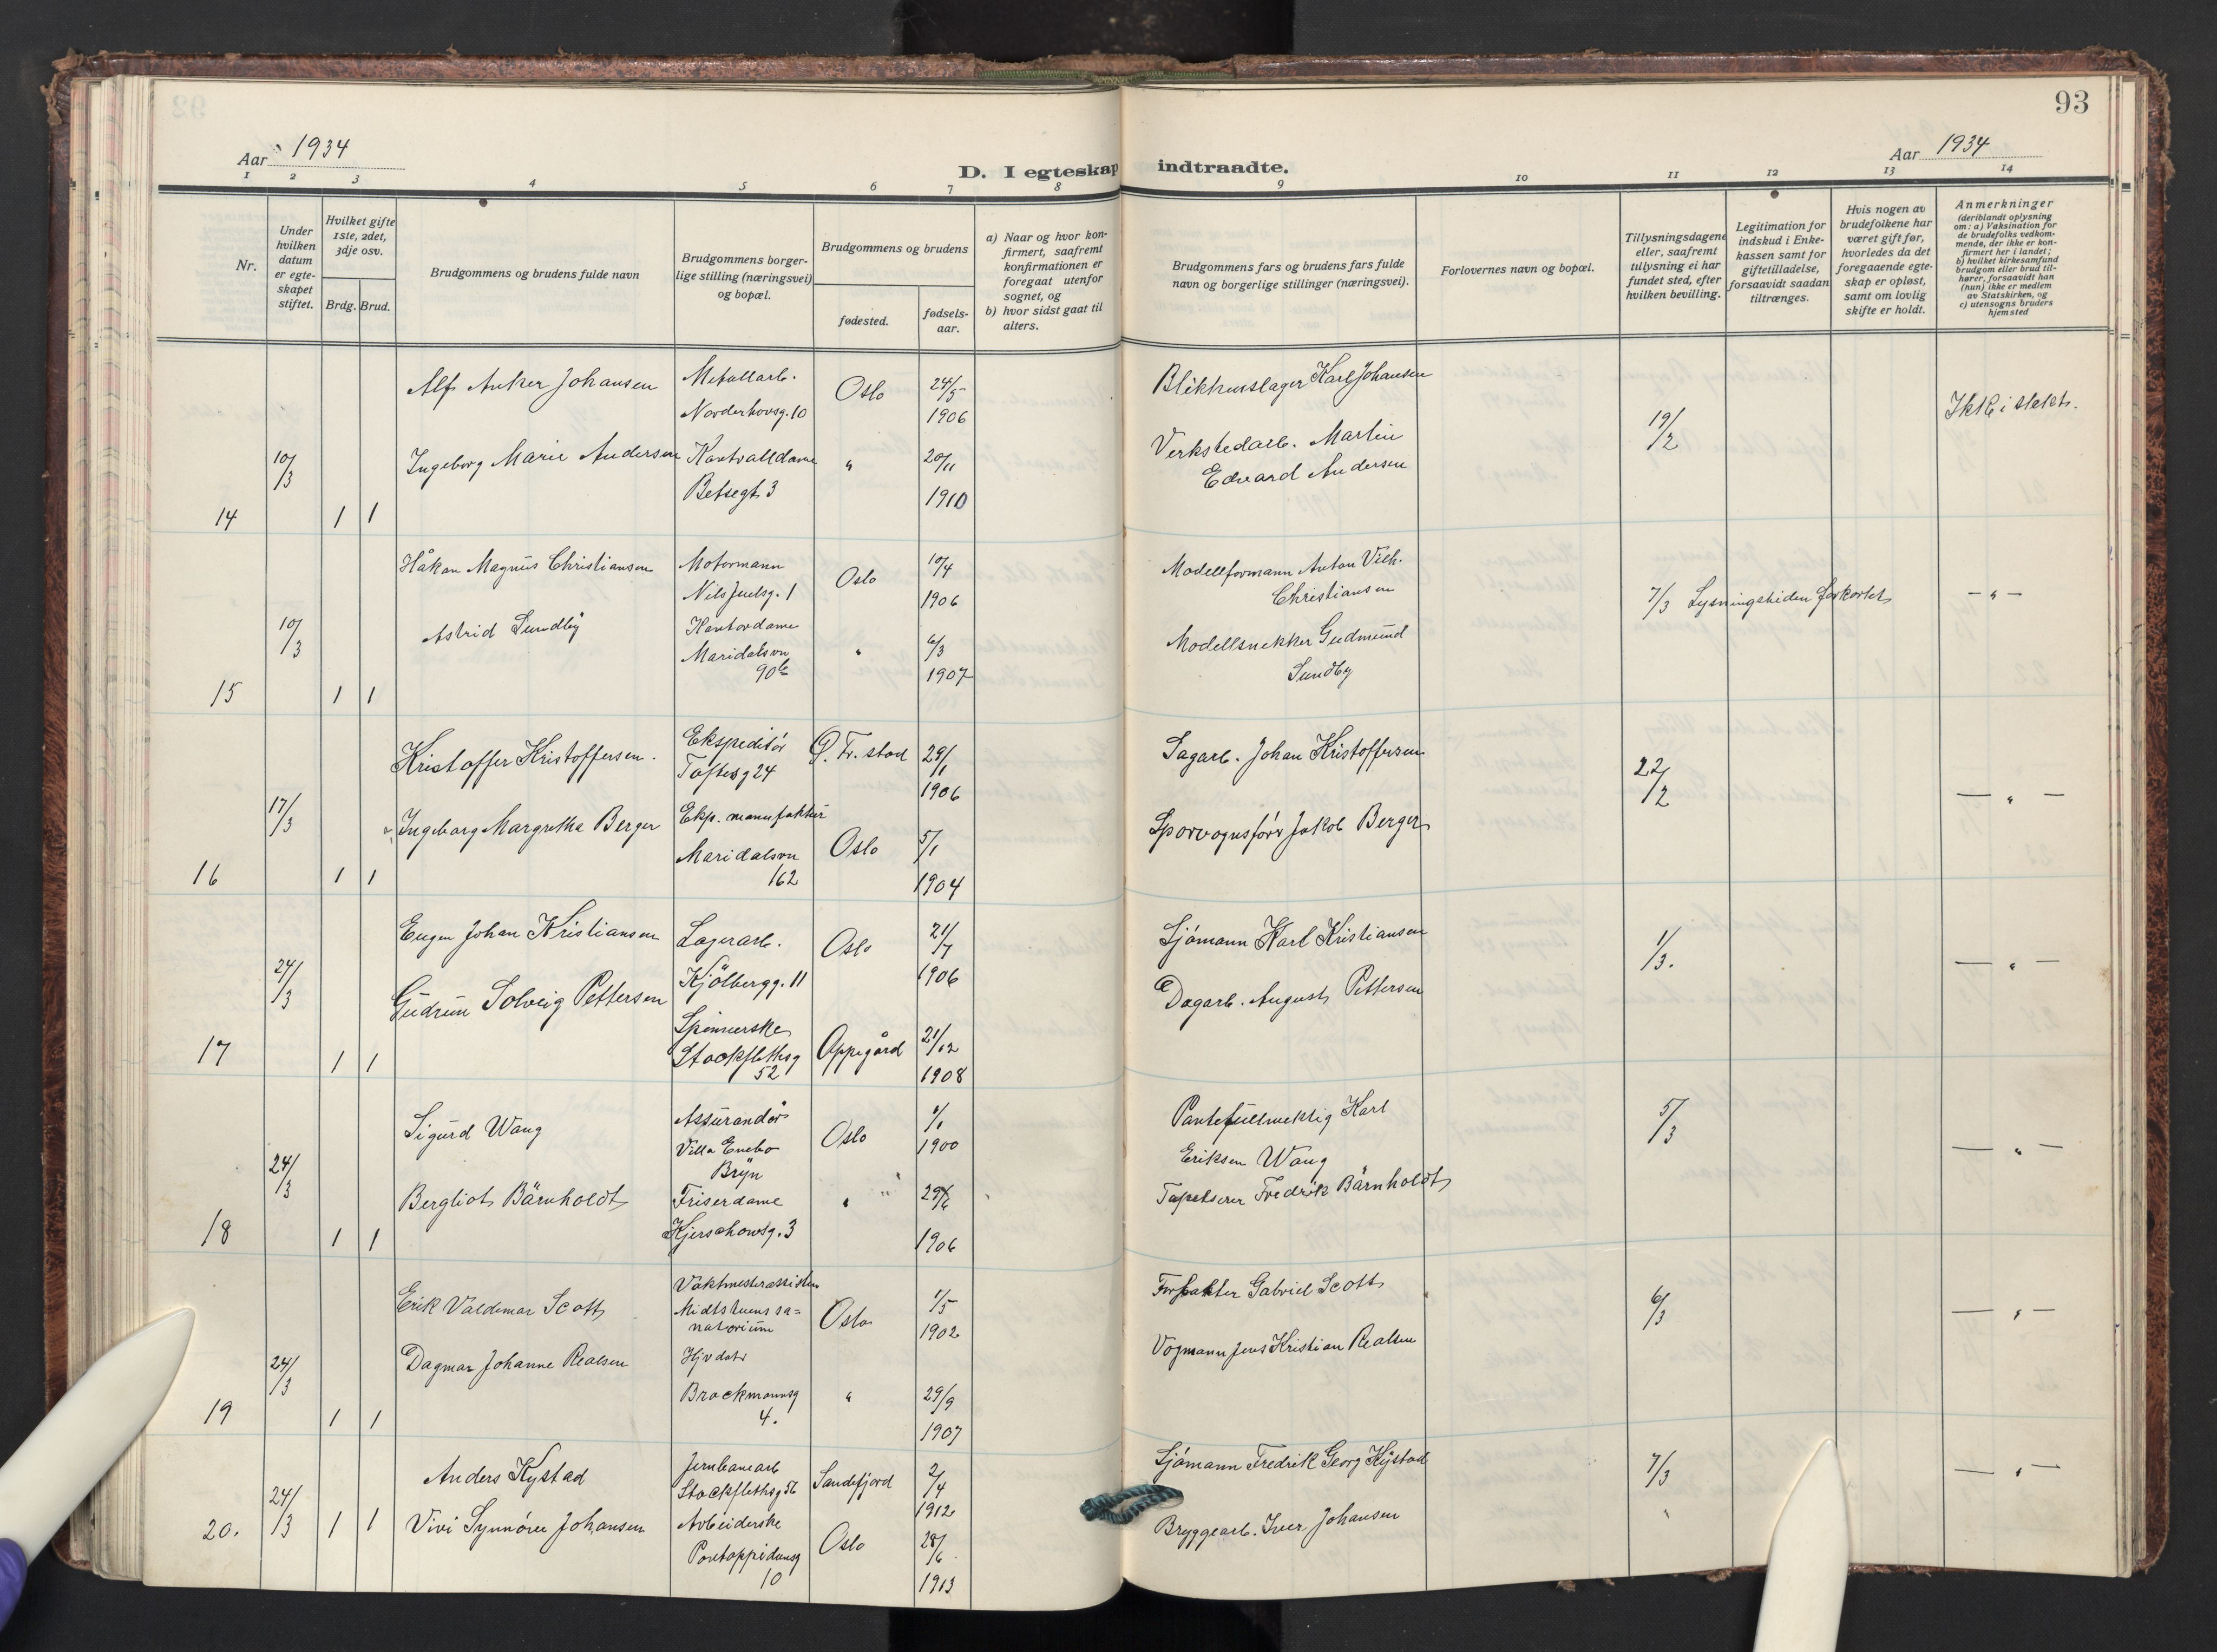 93
Aar 1934
D. I egteskap indtraadte.
Aar 1934
1 2 3 4 5 6 7 8 9 10 11 12 13 14
Nr.
Under
hvilken
datum
er egte-
skapet
stiftet.
Hvilket gifte
1ste, 2det,
3dje osv.
Brdg. Brud.
Brudgommens og brudens fulde navn
Brudgommens borger-
lige stilling (næringsvei)
og bopæl.
Brudgommens og brudens
fødested.
fødsels-
aar.
a) Naar og hvor kon-
firmert, saafremt
konfirmationen er
foregaat utenfor
sognet, og
b) hvor sidst gaat til
alters.
Brudgommens fars og brudens fars fulde
navn og borgerlige stillinger (næringsvei).
Forlovernes navn og bopæl.
Tillysningsdagene
eller, saafremt
tillysning ei har
fundet sted, efter
hvilken bevilling.
Legitimation for
indskud i Enke-
kassen samt for
giftetilladelse,
forsaavidt saadan
tiltrænges.
Hvis nogen av
brudefolkene har
været gift før,
hvorledes da det
foregaaende egte-
skap er opløst,
samt om lovlig
skifte er holdt.
Anmerkninger
(deriblandt oplysning
om: a) Vaksination for
de brudefolks vedkom-
mende, der ikke er kon-
firmert her i landet;
b) hvilket kirkesamfund
brudgom eller brud til-
hører, forsaavidt han
(hun) ikke er medlem
av Statskirken, og
c) utensogns bruders
hjemsted
14
10/3
1 1
Alf Anker Johansen
Metallarb.
Norderhovsg. 10
Oslo
24/5
1906
Blikkenslager Karl Johansen
19/2
Ikke i slekt.
Ingeborg Marie Andersen
Kontrolldame
Betzegt 3
"
20/11
1910
Verkstedarb. Martin
Edvard Andersen
15
10/3
1 1
Håkon Magnus Christiansen
Motormann
Nils Juelsg. 1
Oslo
10/4
1906
Modellformann Anton Vilh.
Christiansen
7/3 Lysningstiden forkortet
— " —
Astrid Sundby
Kontordame
Maridalsvn
90b
"
6/3
1907
Modellsnekker Gudmund
Sundby
16
17/3
1 1
Kristoffer Kristoffersen.
Ekspeditør
Toftesg 24
G. Fr. stad
29/1
1906
Sagarb. Johan Kristoffersen
22/2
— " —
Ingeborg Margrethe Berger
Eksp. manufaktur
Maridalsvn
162
Oslo
5/1
1904
Sporvognsfører Jakob Berger
17
24/3
1 1
Eugen Johan Kristiansen
Lagerarb.
Kjölbergg. 11
Oslo
21/7
1906
Sjømann Karl Kristiansen
1/3.
— " —
Gudrun Solveig Pettersen
Spinnerske
Stockflethsg
52
Oppegård
21/12
1908
Dagarb. August Pettersen
18
24/3
1 1
Sigurd Wang
Assurandør
Villa Enebo
Bryn
Oslo
1900
Pantefullmektig Karl
Eriksen Wang
5/3
— " —
Bergliot Bärnholdt
Friserdame
Kjerschowsg. 3
"
29/6
1906
Tapetserer Fredrik Bärnholdt
19
24/3
1 1
Erik Valdemar Scott
Vaktmesterassisten
Midtstuens sa=
natorium
Oslo
1/5
1902
Forfatter Gabriel Scott
6/3
— " —
Dagmar Johanne Realsen
Hjv datr
Brockmannsg
4.
"
29/9
1907
Vognmann Jens Kristian Realsen
20.
24/3
1 1
Anders Kystad
Jernbanearb
Stockflethsg 56
Sandefjord
2/4
1912
Sjømann Fredrik Georg Kystad
7/3
— " —
Vivi Synnöve Johansen
Arbeiderske
Pontoppidansg
10
Oslo
28/6
1913
Bryggearb. Iver Johansen
"